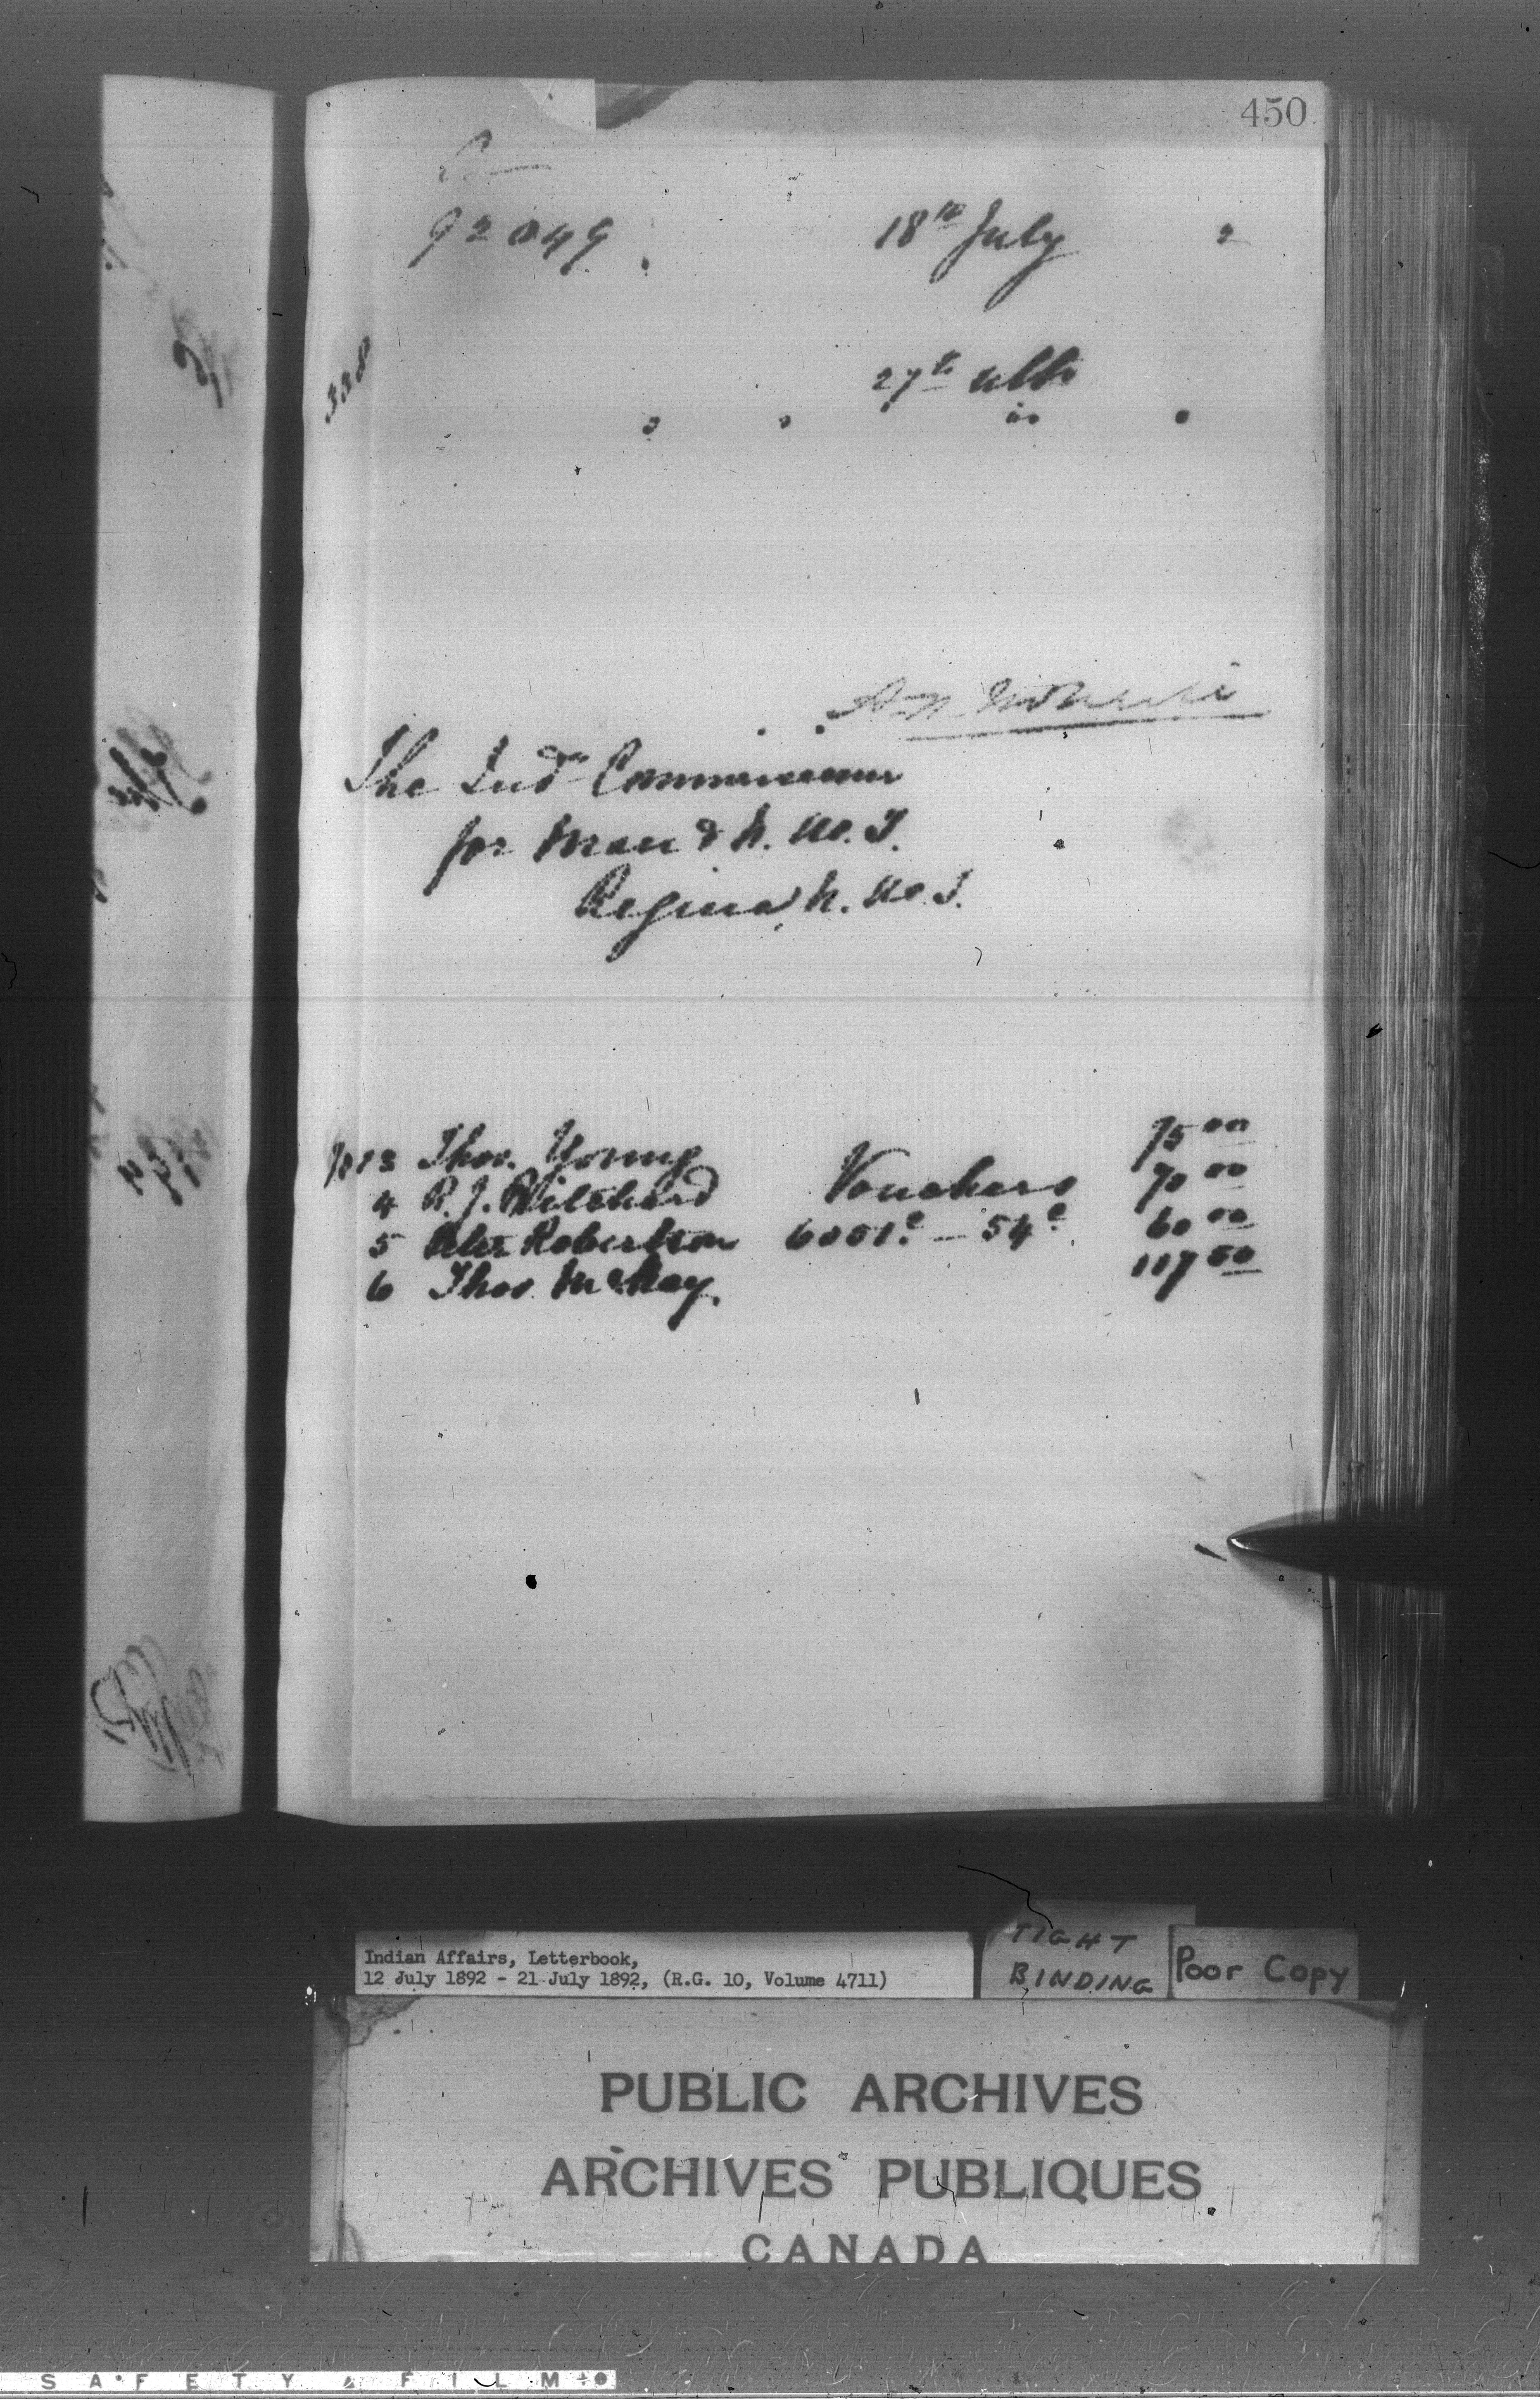 450
92049
18th July 2
27th ulto
328
The Indn Commissioner
for Man & N. W. T.
Regina N. W. T.
Thos. Young 75 00
4 R. J. Pritchard Vouchers 70 00
5 Peter Robertson 6051c – 54c 60 00
6 Thos. McKay. 117 50
Indian Affairs, Letterbook,
12 July 1892 - 21 July 1892, (R.G. 10, Volume 4711)
TIGHT
BINDING
Poor Copy
PUBLIC ARCHIVES
ARCHIVES PUBLIQUES
CANADA
SAFETY FILM